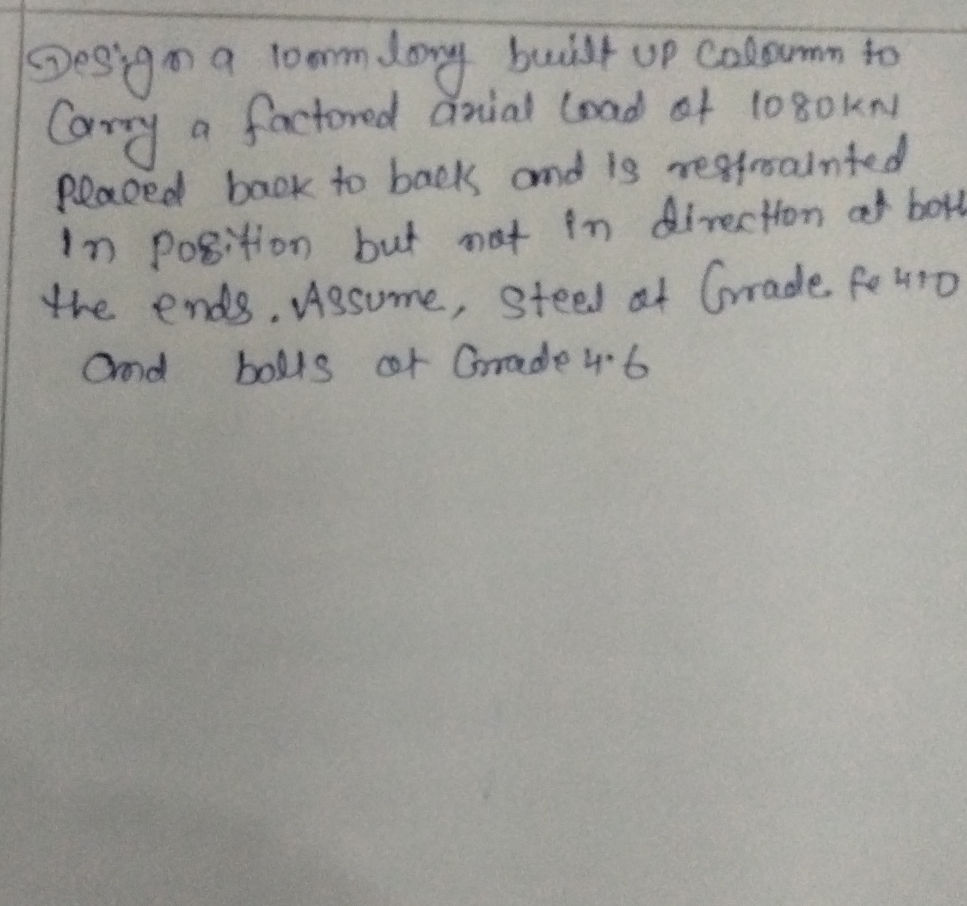 Design a 10mm long built up Coloumn to
Carry a factored axial load of 1080KN
Placed back to back and is restrainted
In position but not in direction at both
the ends. Assume, Steel of Grade Fe 410
and bolts of Grade 4.6